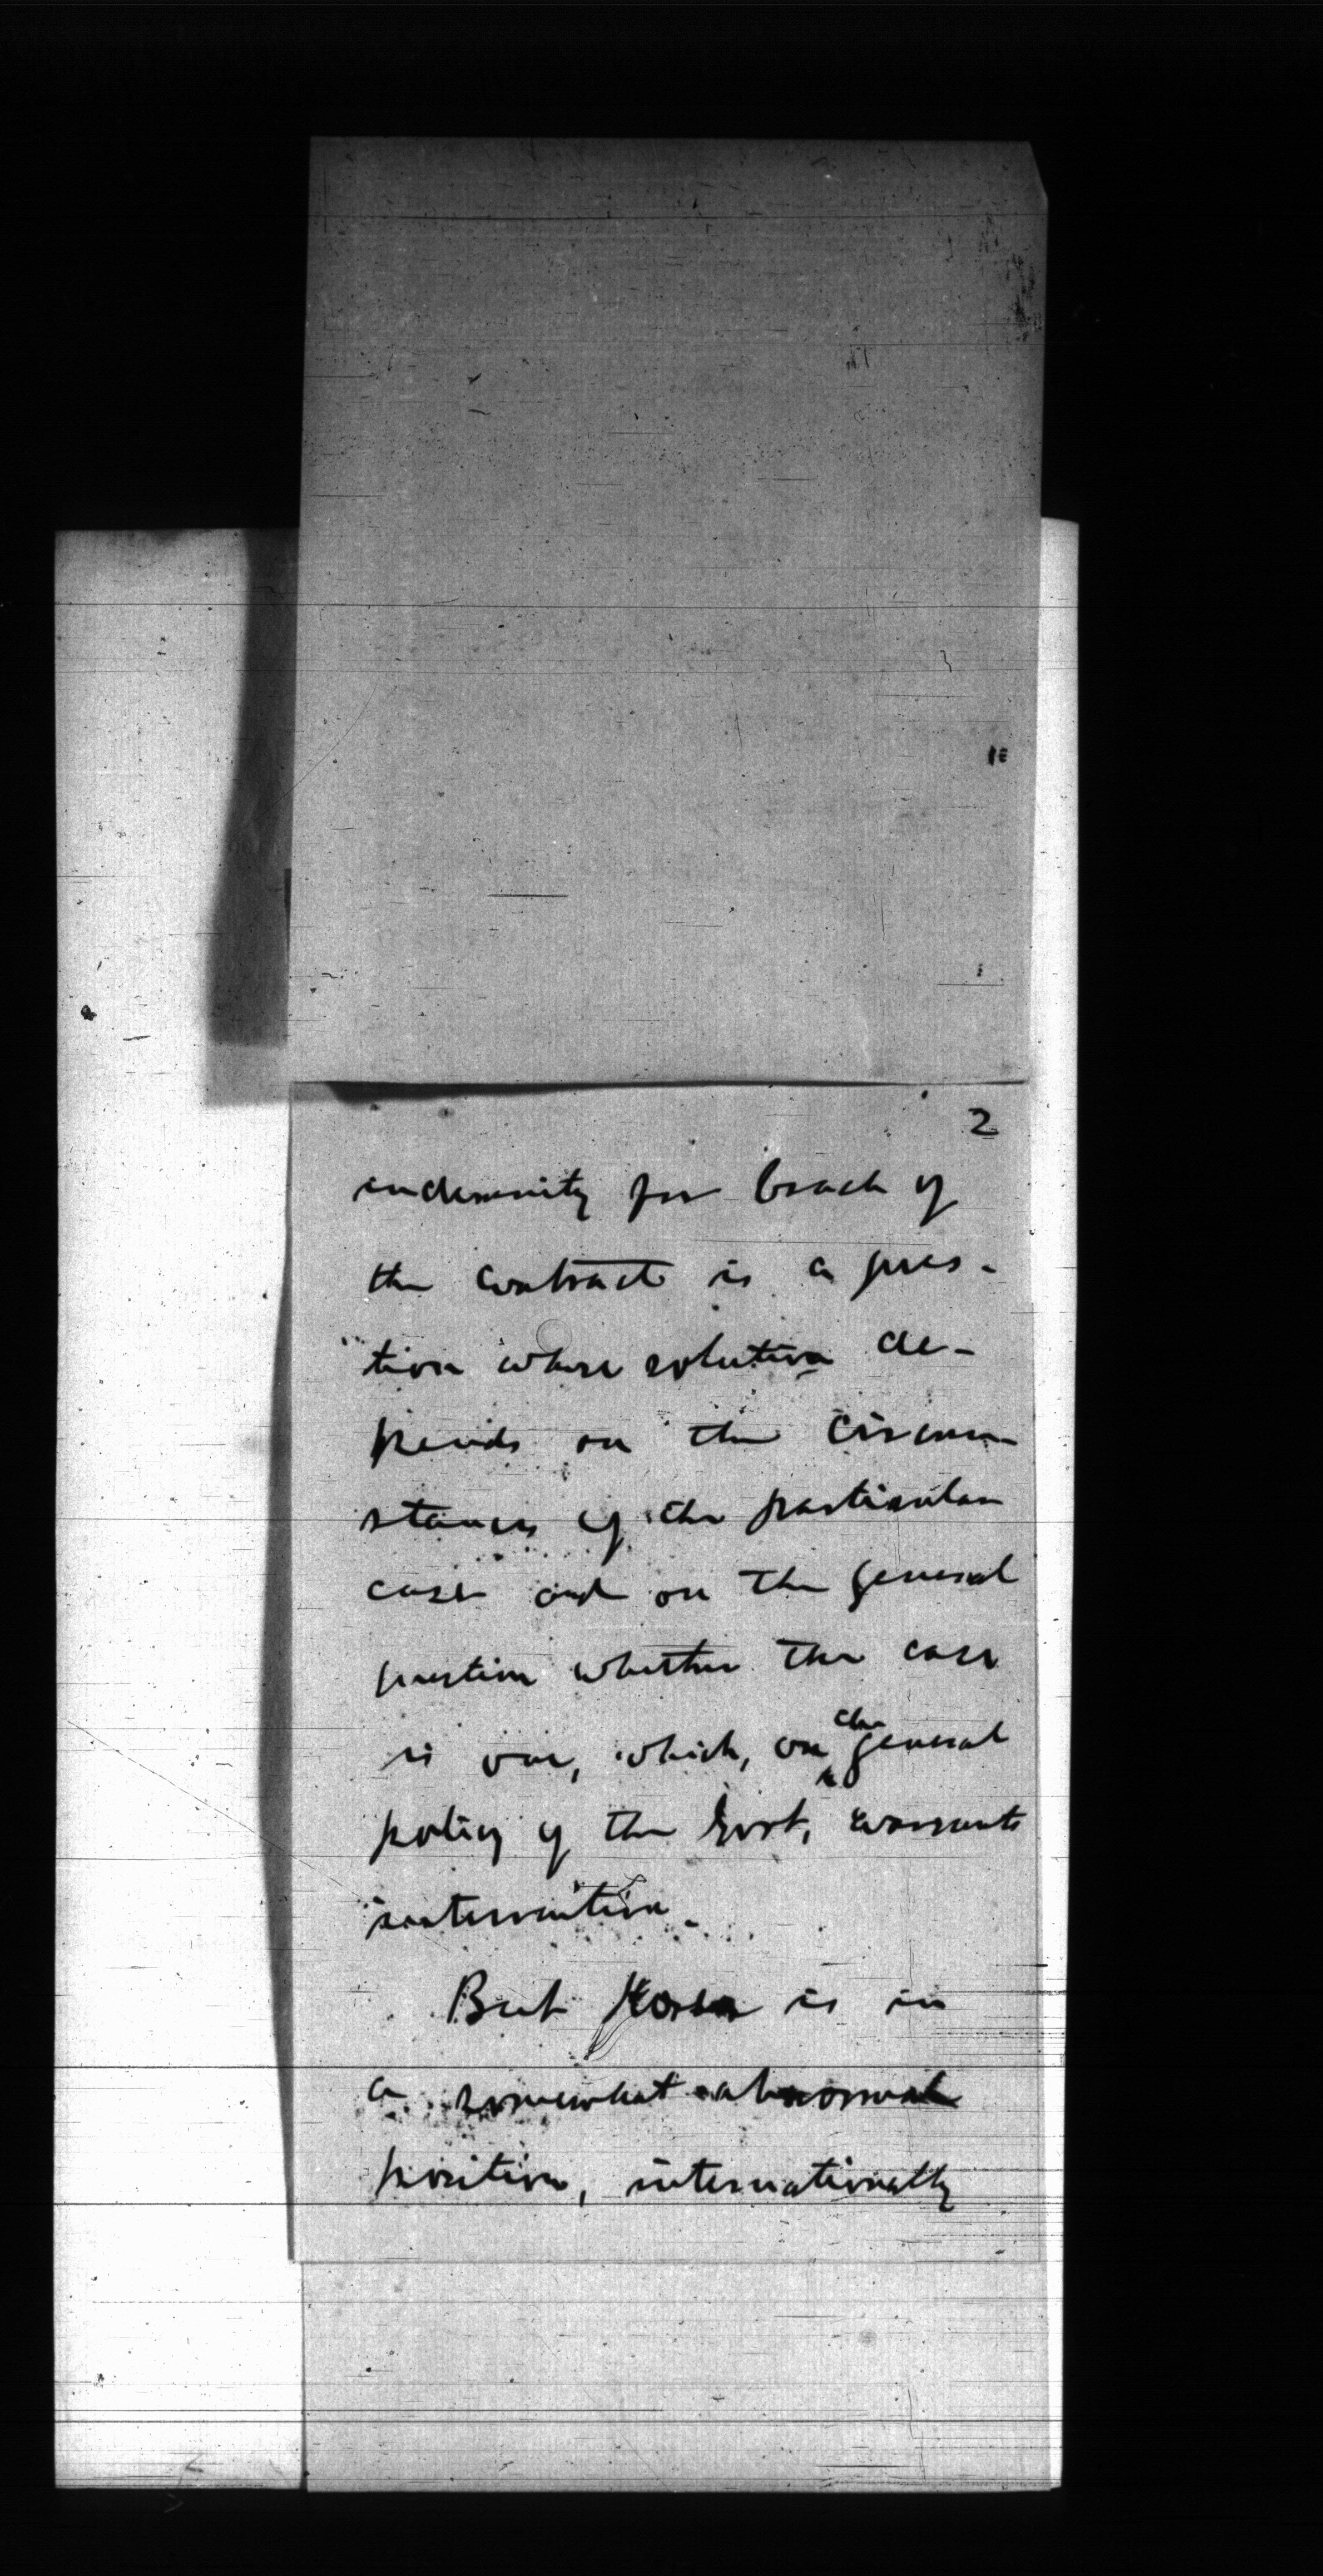 2
indemnity for breach of
the contract is a ques-
tion whose solution de-
pends on the circum-
stances of the particular
case and on the general
question whether the case
is one, which, on the general
policy of the Govt, warrants
intervention.
But Korea is in
a somewhat abnormal
position, internationally